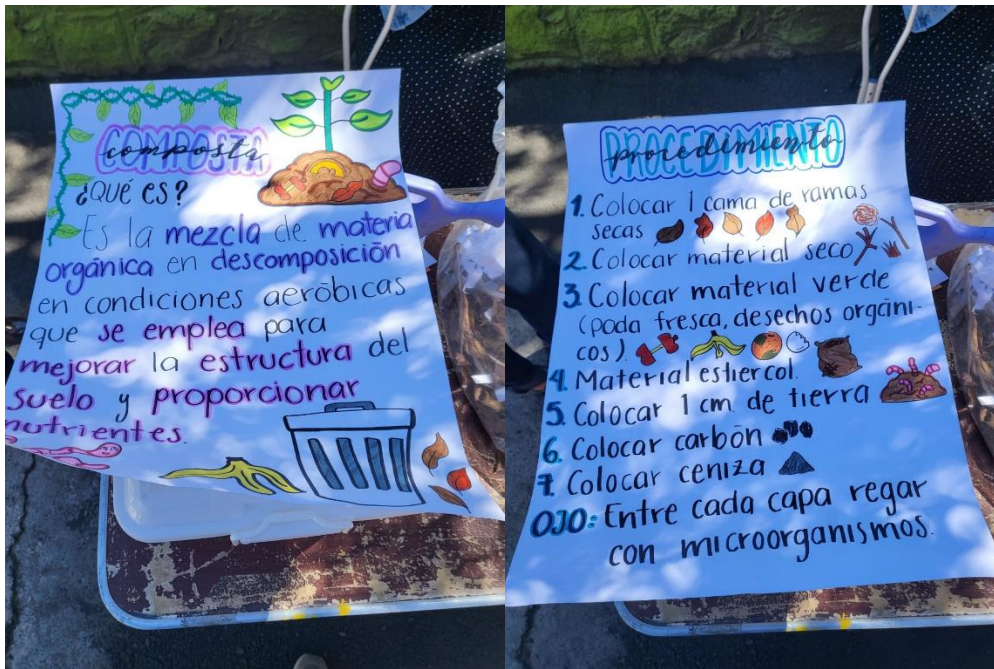 COMPOSTA
composta
¿QUÉ ES?
Es la mezcla de materia
orgánica en descomposición
en condiciones aeróbicas
que se emplea para
mejorar la estructura del
suelo y proporcionar
nutrientes.
PROCEDIMIENTO
procedimiento
1. Colocar 1 cama de ramas
secas
2. Colocar material seco
3. Colocar material verde
(poda fresca, desechos orgáni-
cos).
4. Material estiercol.
5. Colocar 1 cm. de tierra
6. Colocar carbón
7. Colocar ceniza
OJO: Entre cada capa regar
con microorganismos.